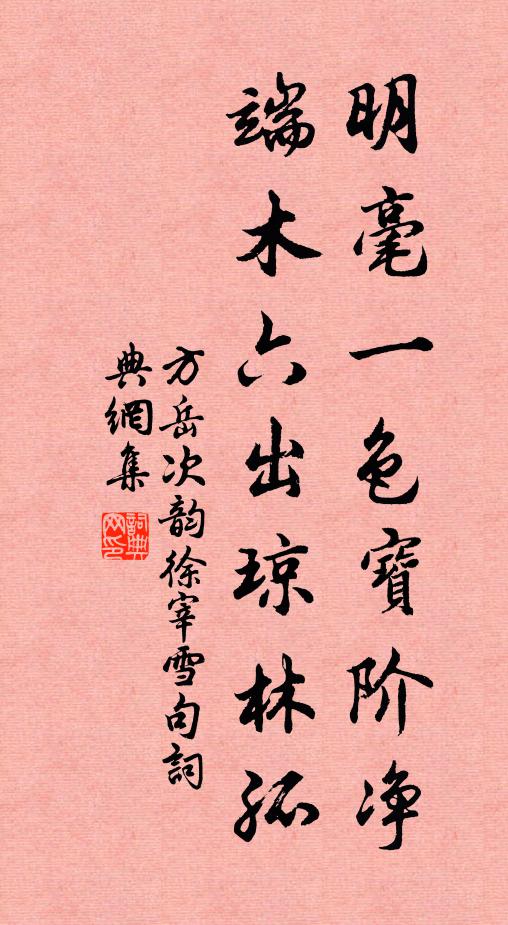 明毫一色寶阶净
端木六出琼林孤
方岳次韵徐宰雪句詞
典網集
詞典網印